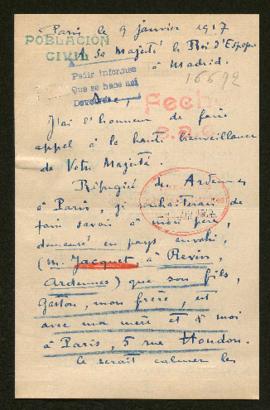 à Paris le 9 janvier 1917
POBLACION
CIVIL
A Sa Majesté le Roi d'Espagne
à Madrid.
16692
Pedir informes
Que se hace así
Sire,
Fecha
J'ai l'honneur de faire
appel à la haute bienveillance
de Votre Majesté.
Réfugié des Ardennes
à Paris, je souhaiterais de
faire savoir à mon père,
demeuré en pays envahi,
(M. Jacquet à Revin,
Ardennes) que son fils,
Gaston, mon frère, est
avec ma mère et moi
à Paris, 5 rue Houdon.
Ce serait calmer les